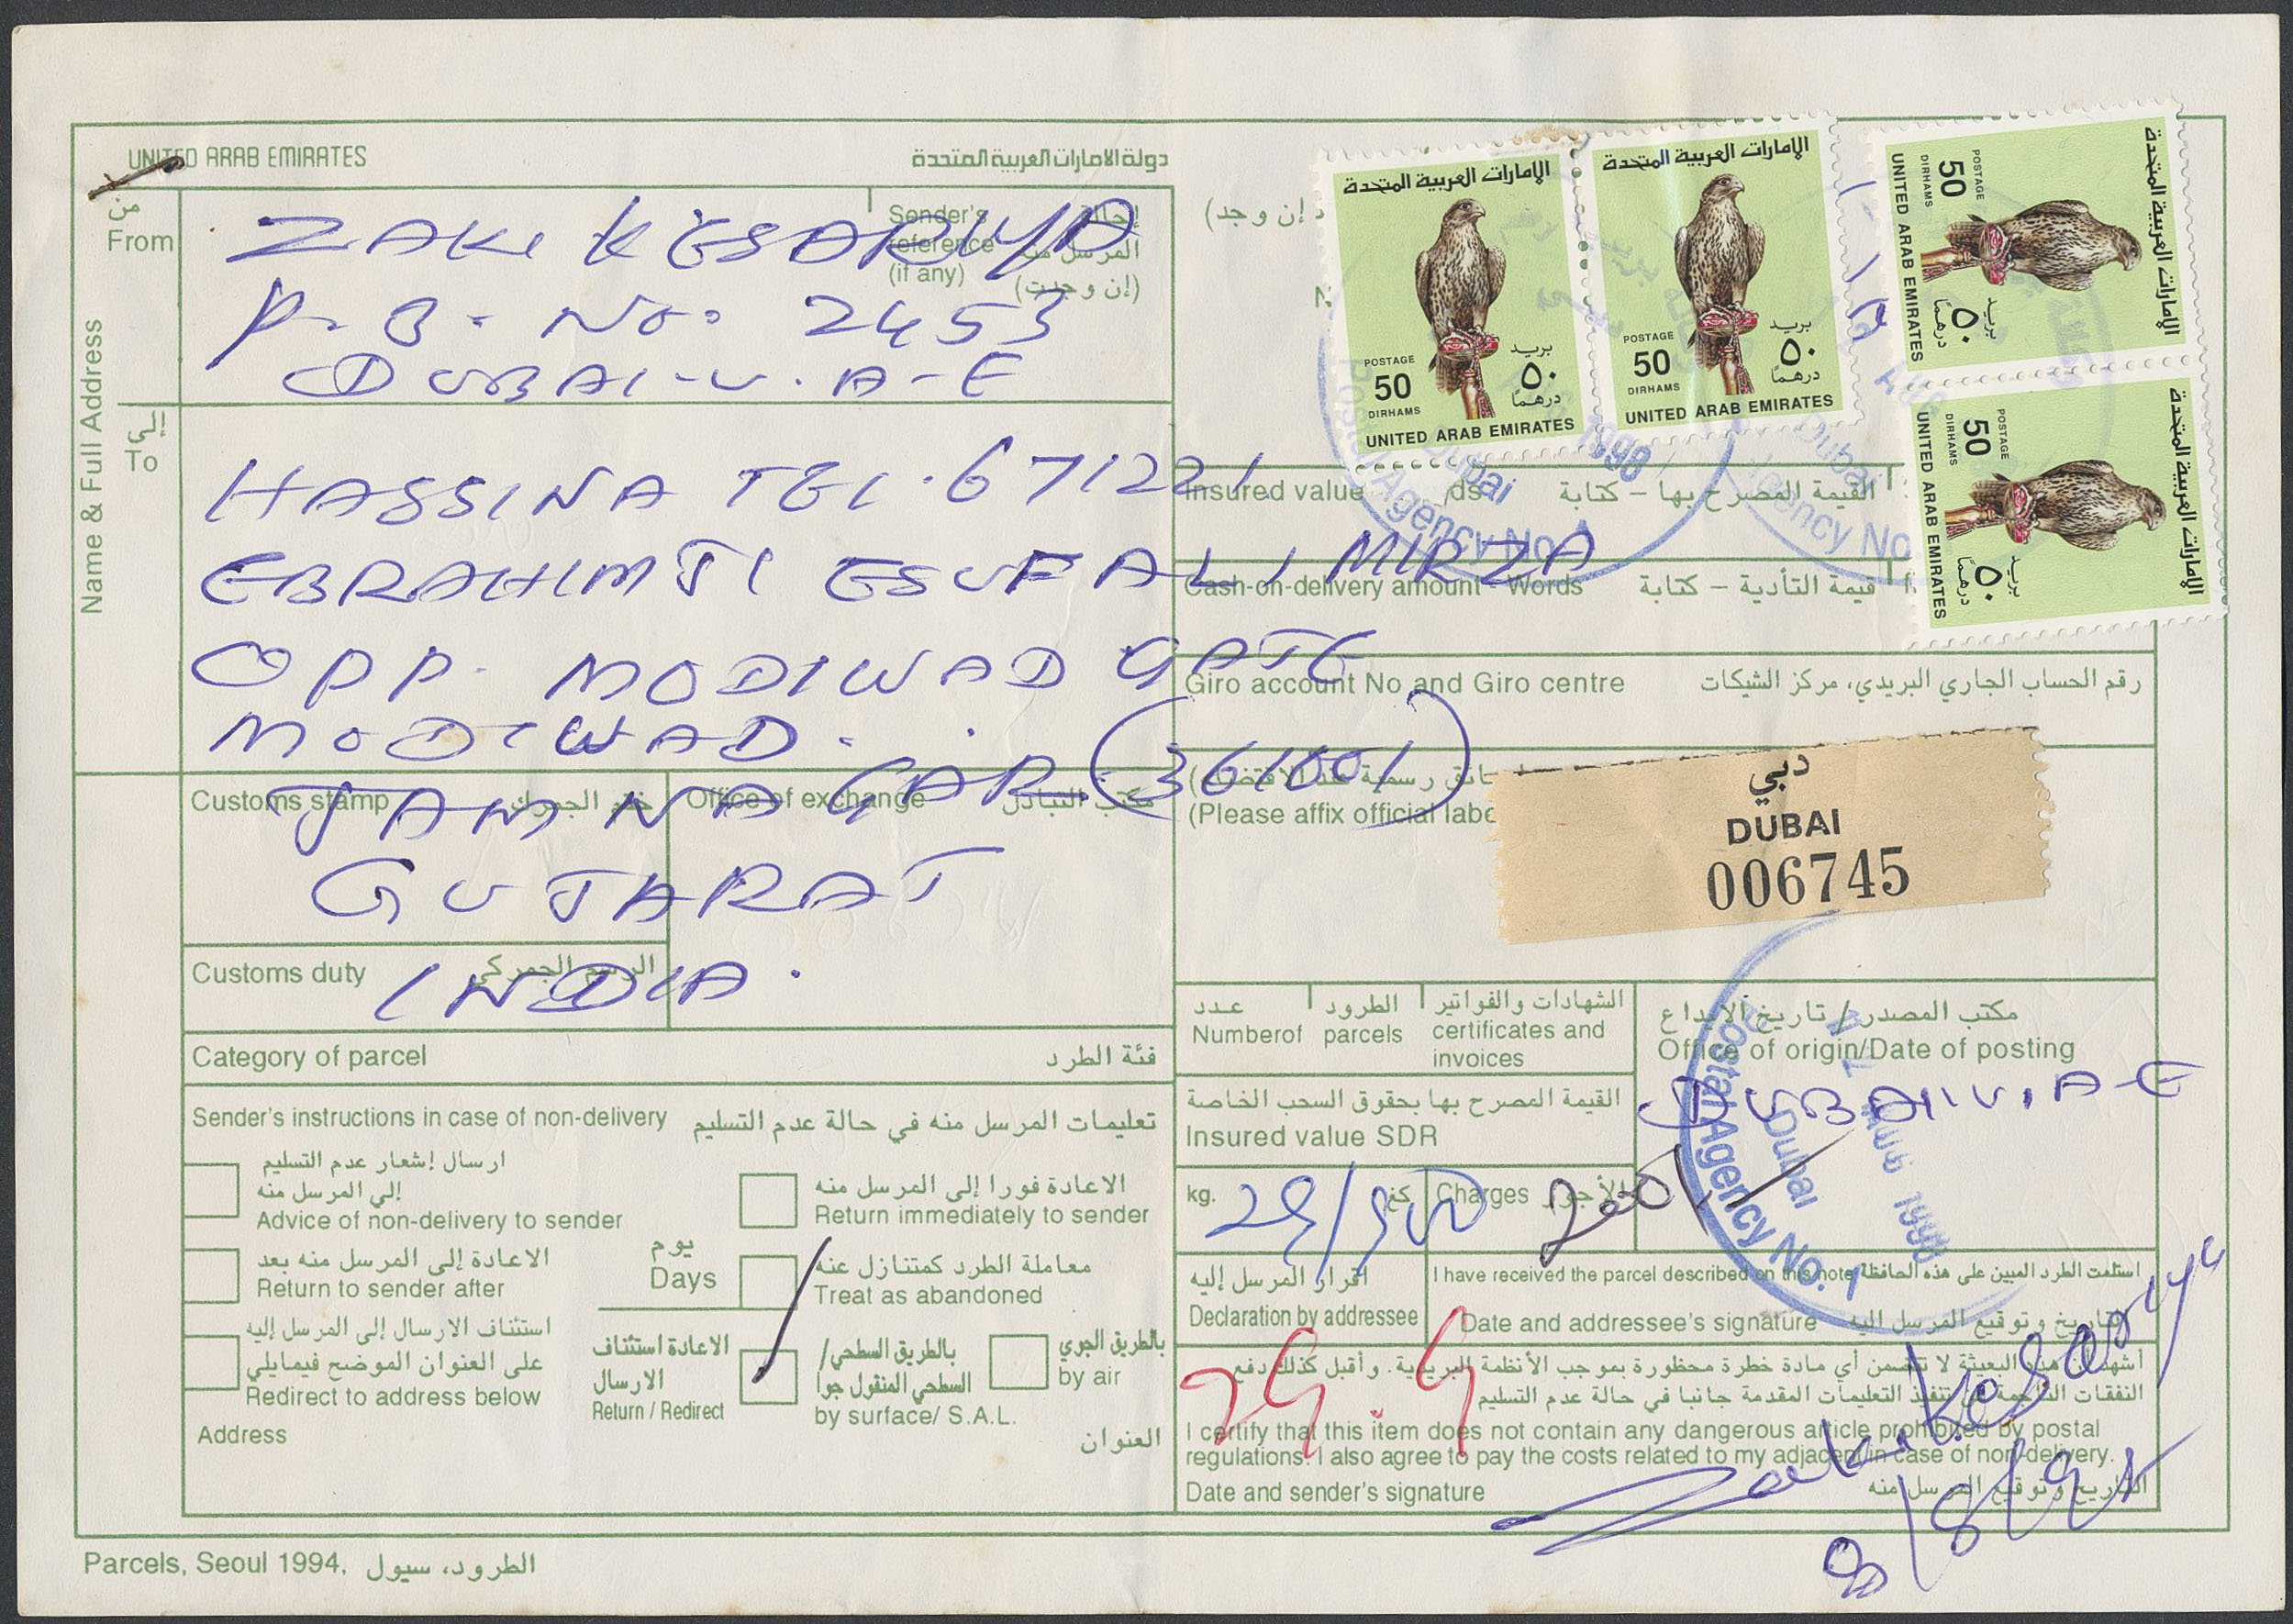 UNITED ARAB EMIRATES
دولة الامارات العربية المتحدة
Name & Full Address
من
From
ZAKI KESARIYA
P.B. No. 2453
DUBAI-U.A-E
Sender's reference (if any)
إحالة المرسل منه
(إن وجدت)
إلى
To
HASSINA TEL. 671221
EBRAHIMJI ESUFALI MIRZA
OPP. MODIWAD GATE
MODIWAD.
JAMNAGAR (361001)
GUJARAT
INDIA.
Customs stamp
ختم الجمرك
Office of exchange
مكتب التبادل
Customs duty
الرسم الجمركي
Category of parcel
فئة الطرد
Sender's instructions in case of non-delivery
تعليمات المرسل منه في حالة عدم التسليم
ارسال إشعار عدم التسليم
إلي المرسل منه
Advice of non-delivery to sender
الاعادة فورا إلى المرسل منه
Return immediately to sender
الاعادة إلى المرسل منه بعد
Return to sender after
يوم
Days
معاملة الطرد كمتنازل عنه
Treat as abandoned
استئناف الارسال إلى المرسل إليه
على العنوان الموضح فيمايلي
Redirect to address below
الاعادة استئناف
الارسال
Return / Redirect
بالطريق السطحي/
السطحي المنقول جوا
by surface/ S.A.L.
بالطريق الجوي
by air
Address
العنوان
Parcels, Seoul 1994, الطرود، سيول
إن وجد)
الإمارات العربية المتحدة
POSTAGE
50
DIRHAMS
بريد
٥٠
درهما
UNITED ARAB EMIRATES
الإمارات العربية المتحدة
POSTAGE
50
DIRHAMS
بريد
٥٠
درهما
UNITED ARAB EMIRATES
الإمارات العربية المتحدة
POSTAGE
50
DIRHAMS
بريد
٥٠
درهما
UNITED ARAB EMIRATES
الإمارات العربية المتحدة
POSTAGE
50
DIRHAMS
بريد
٥٠
درهما
UNITED ARAB EMIRATES
1998
Dubai
Postal Agency No. 1
Dubai
Agency No
Insured value
القيمة المصرح بها – كتابة
Cash-on-delivery amount - Words
قيمة التأدية – كتابة
Giro account No and Giro centre
رقم الحساب الجاري البريدي، مركز الشيكات
(Please affix official labe
دبي
DUBAI
006745
عدد
Numberof
الطرود
parcels
الشهادات والفواتير
certificates and
invoices
مكتب المصدر/ تاريخ الايداع
Office of origin/Date of posting
DUBAI U.A-E
القيمة المصرح بها بحقوق السحب الخاصة
Insured value SDR
kg.
كغ
Charges
الأجور
200/
Postal Agency No. 1
Dubai
1998
اقرار المرسل إليه
Declaration by addressee
I have received the parcel described on this note
استلمت الطرد المبين على هذه الحافظة
Date and addressee's signature
تاريخ وتوقيع المرسل اليه
أشهد أن هذه البعيثة لا تتضمن أي مادة خطرة محظورة بموجب الأنظمة البريدية. وأقبل كذلك دفع
النفقات الناجمة عن تنفيذ التعليمات المقدمة جانبا في حالة عدم التسليم
I certify that this item does not contain any dangerous article prohibited by postal
regulations. I also agree to pay the costs related to my adjacent in case of non-delivery.
Date and sender's signature
التاريخ وتوقيع المرسل منه
Zaki Kesariya